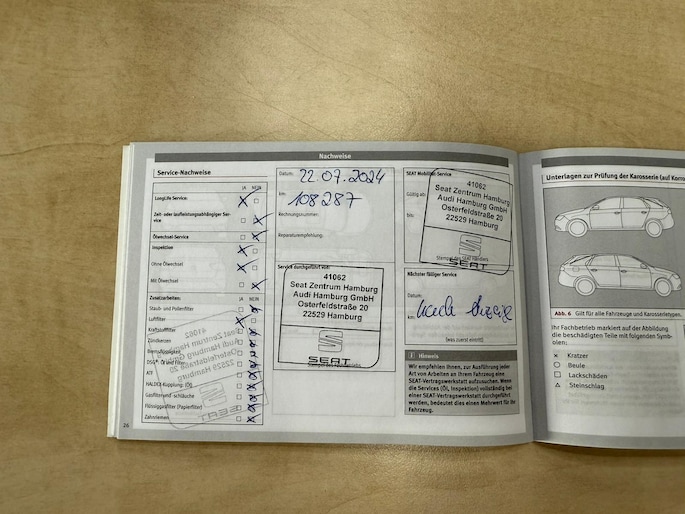 Nachweise
Service-Nachweise
JA NEIN
LongLife Service:
Zeit- oder laufleistungsabhängiger Ser-
vice
Ölwechsel-Service
Inspektion
Ohne Ölwechsel
Mit Ölwechsel
Zusatzarbeiten: JA NEIN
Staub- und Pollenfilter
Luftfilter
Kraftstofffilter
Zündkerzen
Bremsflüssigkeit
ATF
HALDEX-Kupplung: (Öl)
Gasfilter und -schläuche
Flüssiggasfilter (Papierfilter)
Zahnriemen
26
Datum: 22.07.2024
km: 108287
Rechnungsnummer:
Reparaturempfehlung:
Service durchgeführt von:
41062
Seat Zentrum Hamburg
Audi Hamburg GmbH
Osterfeldstraße 20
22529 Hamburg
SEAT
Stempel des SEAT Händlers
SEAT Mobilität-Service
Gültig ab:
bis:
41062
Seat Zentrum Hamburg
Audi Hamburg GmbH
Osterfeldstraße 20
22529 Hamburg
Stempel des SEAT Händlers
SEAT
Nächster fälliger Service
Datum:
km:
nach Anzeige
(was zuerst eintritt)
Hinweis
Wir empfehlen Ihnen, zur Ausführung jeder
Art von Arbeiten an Ihrem Fahrzeug eine
SEAT-Vertragswerkstatt aufzusuchen. Wenn
die Services (Öl, Inspektion) vollständig bei
einer SEAT-Vertragswerkstatt durchgeführt
werden, bedeutet dies einen Mehrwert für Ihr
Fahrzeug.
41062
Seat Zentrum Hamburg
Audi Hamburg GmbH
Osterfeldstraße 20
22529 Hamburg
SEAT
Unterlagen zur Prüfung der Karosserie (auf
Abb. 6 Gilt für alle Fahrzeuge und Karosserietypen.
Ihr Fachbetrieb markiert auf der Abbildung
die beschädigten Teile mit folgenden Symb-
olen:
× Kratzer
○ Beule
□ Lackschäden
△ Steinschlag